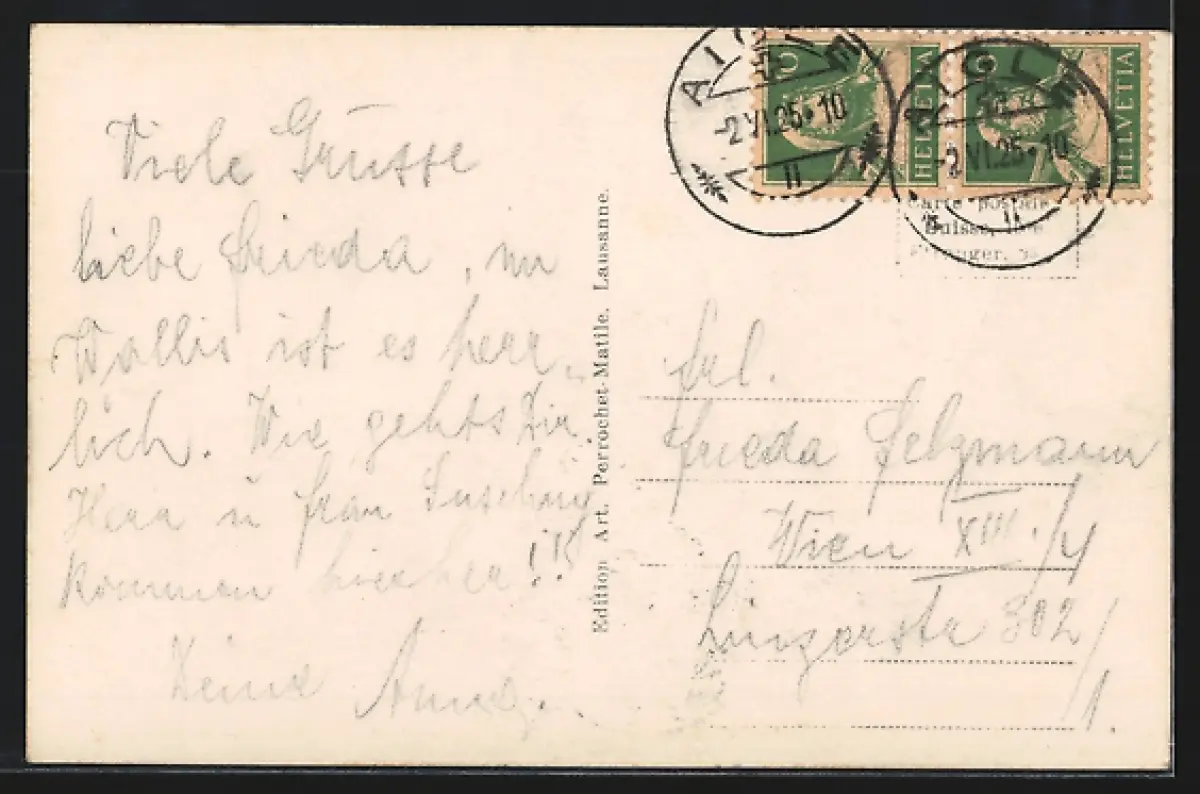 Viele Grüsse
liebe Frieda, im
Wallis ist es herr-
lich. Wie gehts Dir.
Herr u Frau
kommen hierher!!!
Deine
Edition Art. Perrochet-Matile. Lausanne.
AIGLE
-2.VI.25-10
II
AIGLE
-2.VI.25-10
II
HELVETIA
HELVETIA
Carte postale
Suisse,
Frl.
Frieda Selzmann
Wien XIII./4
Linzerstr 302/
1.